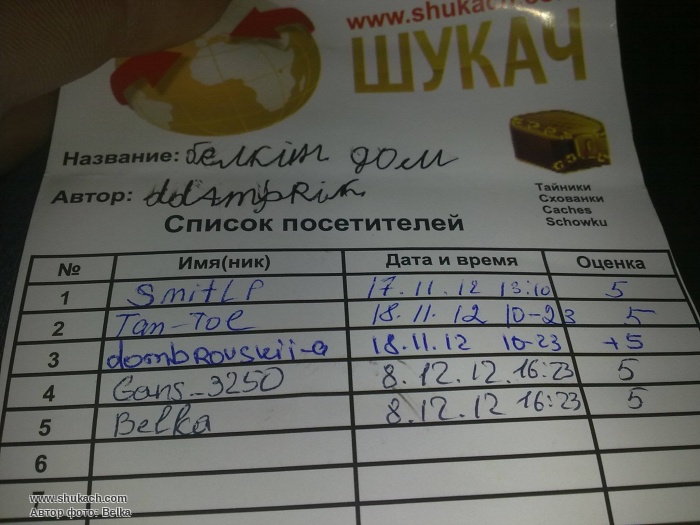 www.shukach.com
ШУКАЧ
Название: белкін дом
Тайники
Схованки
Caches
Schowku
Автор:
Список посетителей
№ Имя(ник) Дата и время Оценка
1 SmitLP 17.11.12 13:10 5
2 Tan-Tol 18.11.12 10-23 5
3 dombrovskii-a 18.11.12 10-23 +5
4 Gans-3250 8.12.12. 16:23 5
5 Belka 8.12.12 16:23 5
6
7
www.shukach.com
Автор фото: Belka